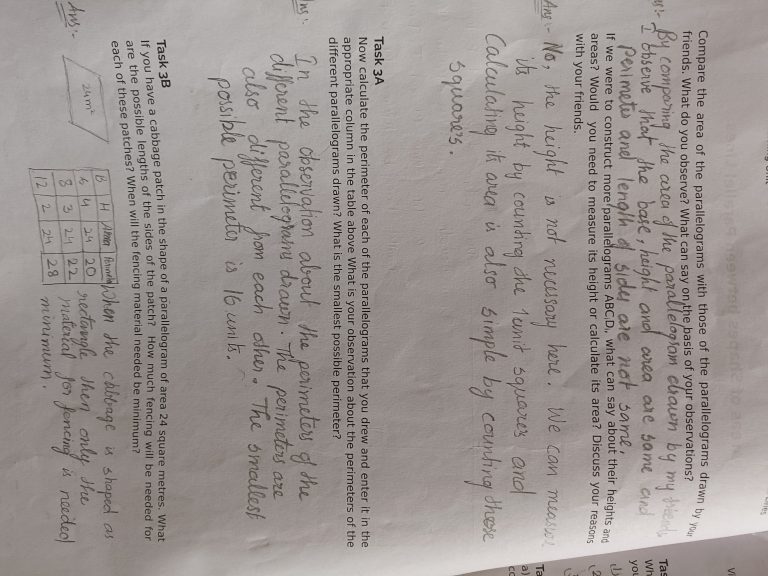 Compare the area of the parallelograms with those of the parallelograms drawn by your
friends. What do you observe? What can say on the basis of your observations?
By comparing the area of the parallelogram drawn by my friends
I observe that the base, height and area are same and
perimeter and length of sides are not same.
If we were to construct more parallelograms ABCD, what can say about their heights and
areas? Would you need to measure its height or calculate its area? Discuss your reasons
with your friends.
Ans:- No, the height is not necessary here. We can measure
its height by counting the 1unit squares and
Calculating its area is also simple by counting these
squares.
Task 3A
Now calculate the perimeter of each of the parallelograms that you drew and enter it in the
appropriate column in the table above What is your observation about the perimeters of the
different parallelograms drawn? What is the smallest possible perimeter?
Ans:- In the observation about the perimeters of the
different parallelograms drawn. The perimeters are
also different from each other. The smallest
possible perimeter is 16 units.
Task 3B
If you have a cabbage patch in the shape of a parallelogram of area 24 square metres. What
are the possible lengths of the sides of the patch? How much fencing will be needed for
each of these patches? When will the fencing material needed be minimum?
Ans:-
24m²
B H Area Perimeter
6 4 24 20
8 3 24 22
12 2 24 28
When the cabbage is shaped as
rectangle then only the
material for fencing is needed
minimum.